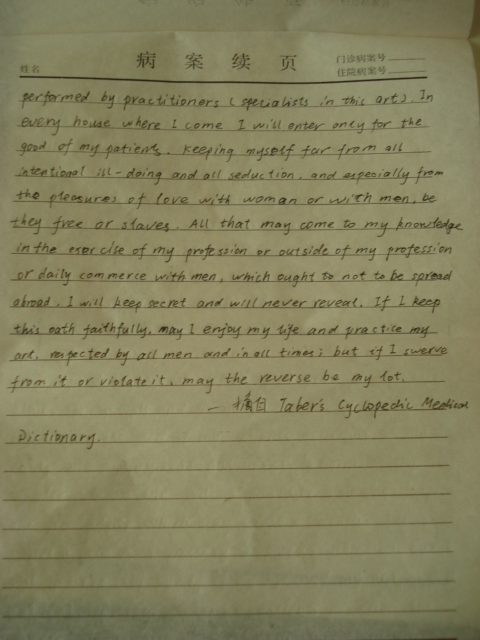 病案续页
门诊病案号
姓名
住院病案号
performed by practitioners (specialists in this art). In
every house where I come I will enter only for the
good of my patients, keeping myself far from all
intentional ill-doing and all seduction, and especially from
the pleasures of love with woman or with men, be
they free or slaves. All that may come to my knowledge
in the exercise of my profession or outside of my profession
or daily commerce with men, which ought to not to be spread
abroad, I will keep secret and will never reveal. If I keep
this oath faithfully, may I enjoy my life and practice my
art, respected by all men and in all times; but if I swerve
from it or violate it, may the reverse be my lot.
— 摘自 Taber's Cyclopedic Medical
Dictionary.